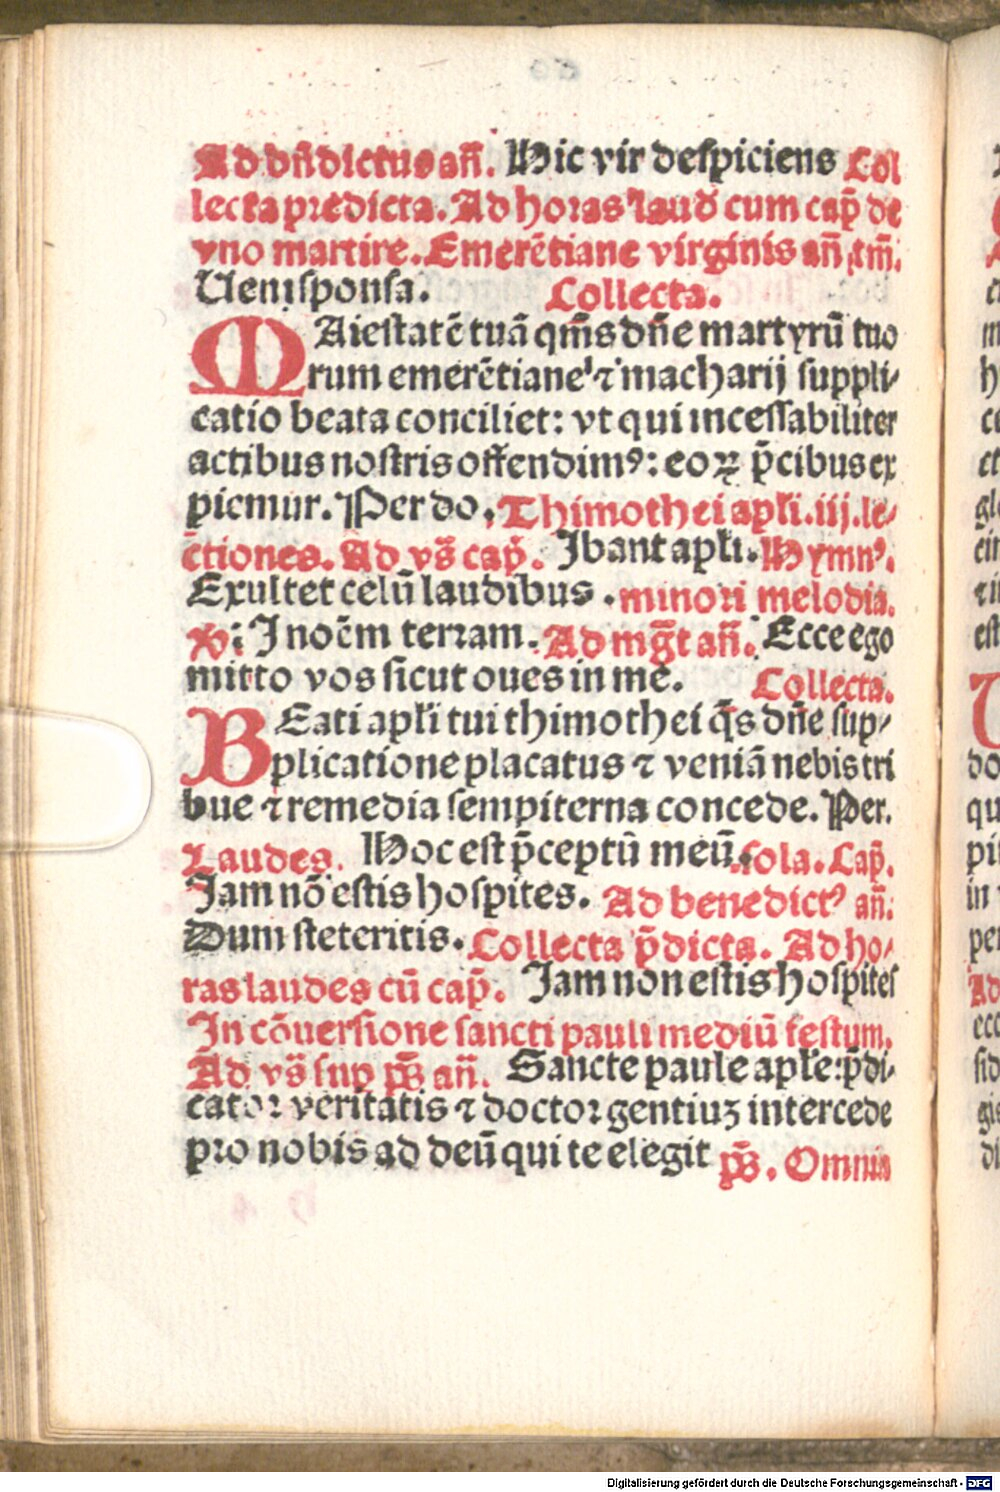 Ad bn̄dictus an̄. Hic vir despiciens Col
lecta predicta. Ad horas laud̕ cum cap̄ de
vno martire. Emerētiane virginis an̄ tm̄.
Ueni sponsa. Collecta.
MAiestatē tuā qm̄s dn̄e martyrū tuo
rum emerētiane ⁊ macharij suppli⸗
catio beata conciliet: vt qui incessabiliter
actibus nostris offendimꝰ: eoꝝ p̄cibus ex
picmur. Per do. Thimothei apl̄i. iij. le⸗
ctiones. Ad vs̄ cap̄. Ibant apl̄i. Hymnꝰ.
Exultet celū laudibus. minori melodia.
V̕: In oēm terram. Ad mḡt an̄. Ecce ego
mitto vos sicut oues in me. Collecta.
BEati apl̄i tui thimothei q̄s dn̄e sup⸗
plicatione placatus ⁊ veniā nebis tri
bue ⁊ remedia sempiterna concede. Per.
Laudes. Hoc est p̄ceptū meū. sola. Cap̄.
Iam nō estis hospites. Ad benedictꝰ an̄.
Dum steteritis. Collecta p̄dicta. Ad ho⸗
ras laudes cū cap̄. Iam non estis hospites
In cōuersione sancti pauli mediū festum.
Ad vs̄ sup ps̄ an̄. Sancte paule apl̄e: p̄di⸗
cator veritatis ⁊ doctor gentiuꝫ intercede
pro nobis ad deū qui te elegit ps̄. Omnis
Digitalisierung gefördert durch die Deutsche Forschungsgemeinschaft - DFG